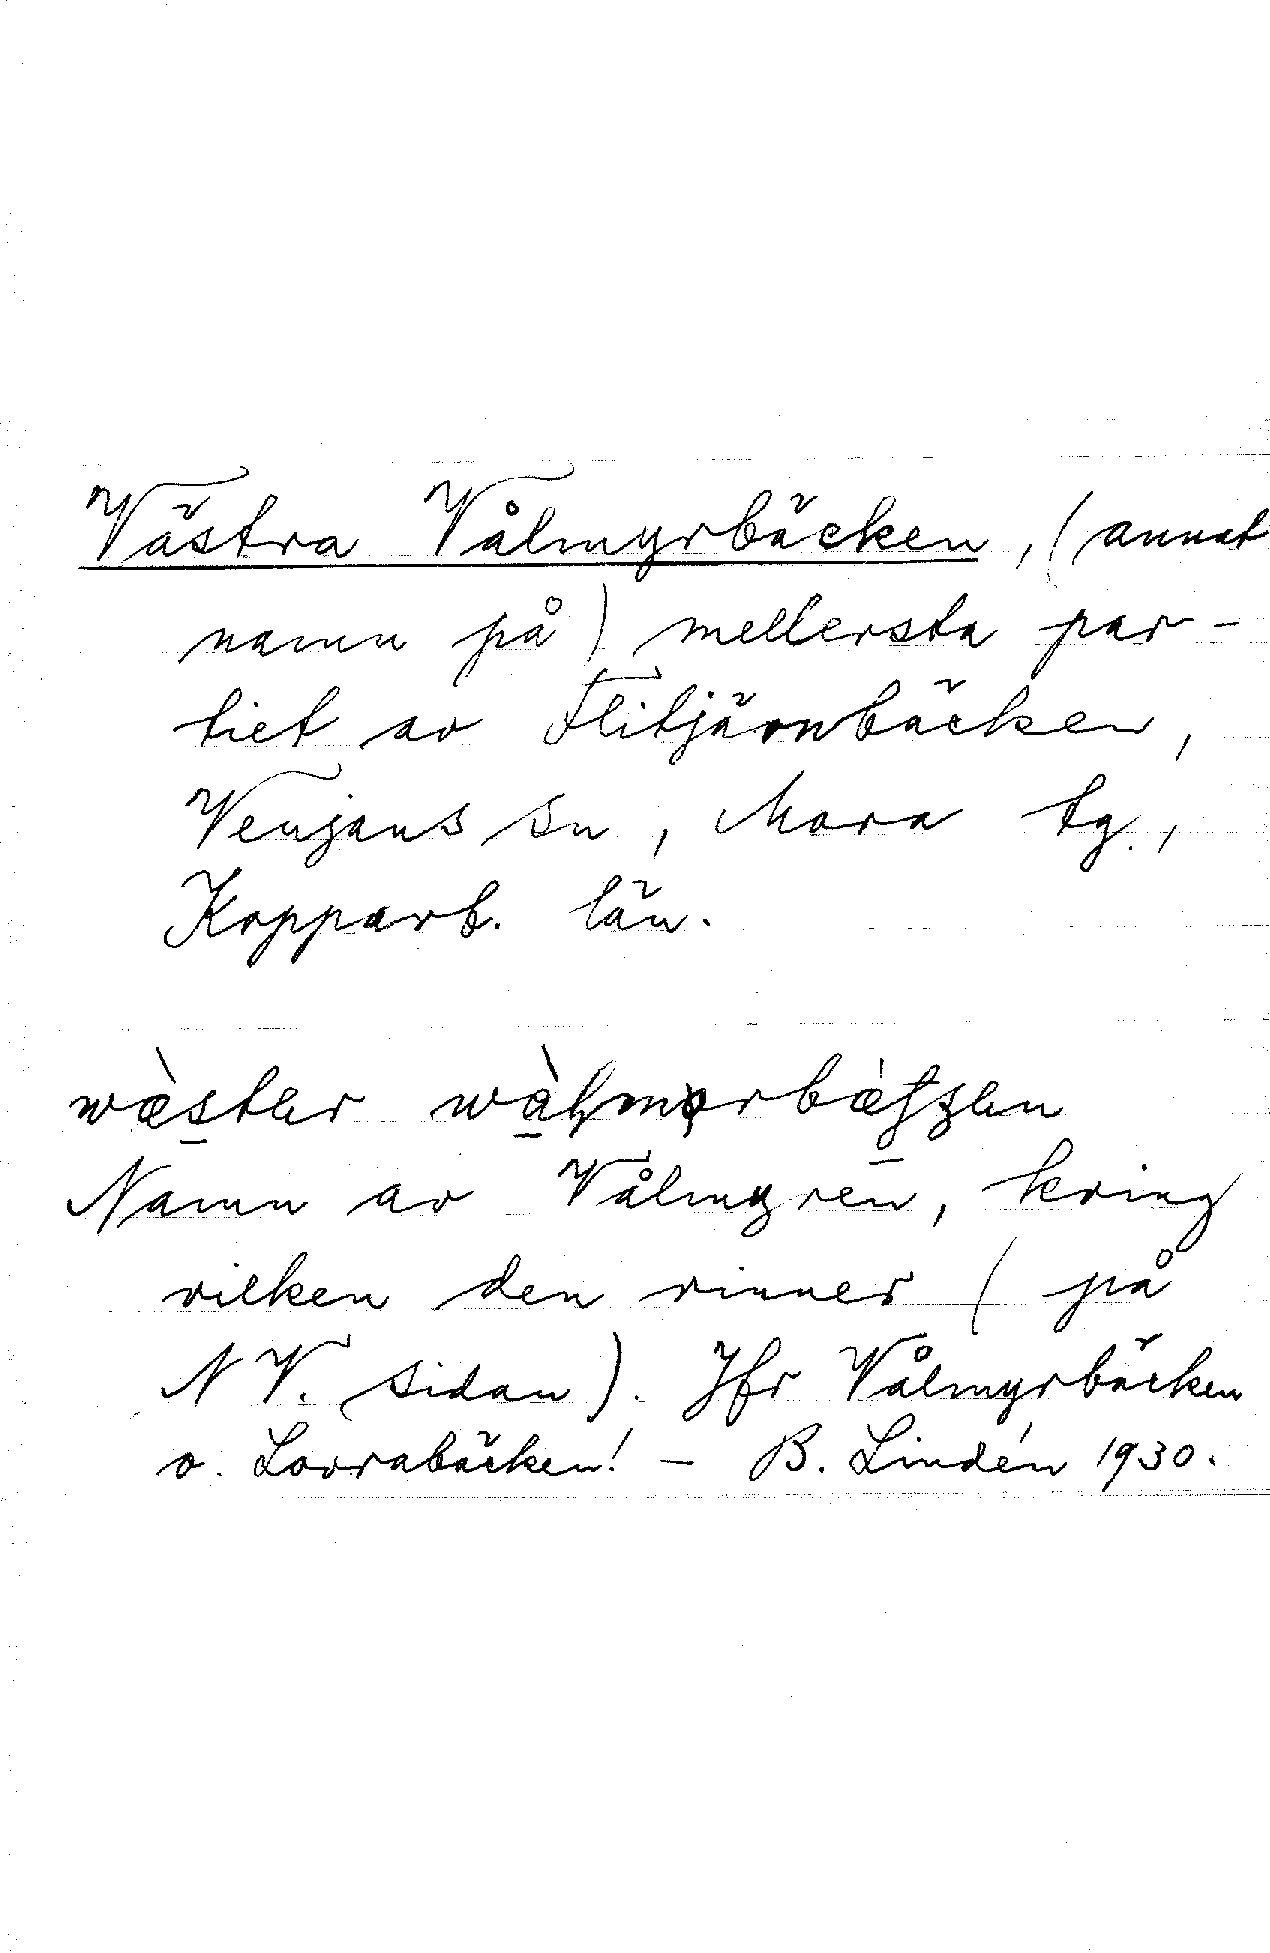 Västra Vålmyrbäcken, (annat
namn på) mellersta par-
tiet av Flitjärnbäcken,
Venjans sn, Mora tg.,
Kopparb. län.
Namn av Vålmyren, kring
vilken den rinner (på
NV. sidan). Jfr Vålmyrbäcken
o. Lovrabäcken! - B. Lindén 1930.